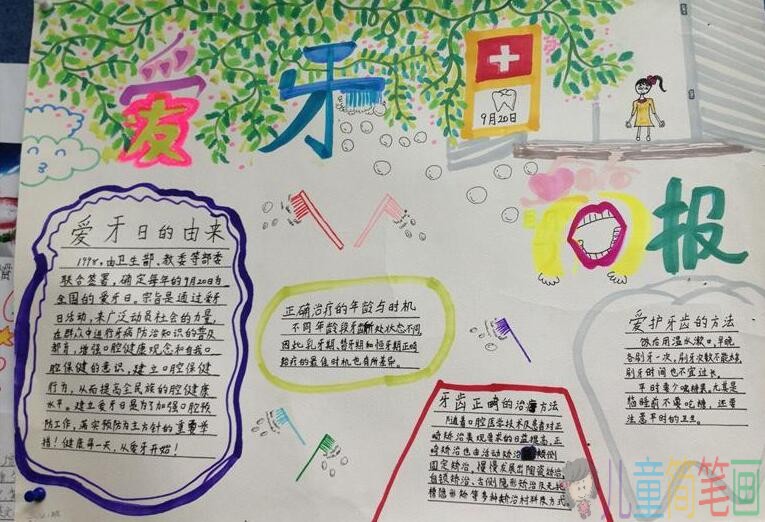 爱牙日
9月20日
小报
爱牙日的由来
199*年,由卫生部、教委等部委
联合签署,确定每年的9月20日为
全国的爱牙日。宗旨是通过爱牙
日活动,来广泛动员社会的力量,
在群众中进行牙病防治知识的普及
教育,增强口腔健康观念和自我口
腔保健的意识,建立口腔保健
行为,从而提高全民族的口腔健康
水平。建立爱牙日是为了加强口腔预
防工作,落实预防为主方针的重要举
措!健康每一天,从爱牙开始!
正确治疗的年龄与时机
不同年龄段牙齿所处状态不同,
因此乳牙期、替牙期和恒牙期正畸
治疗的最佳时机也有所差异。
牙齿正畸的治疗方法
随着口腔医学技术及患者对正
畸矫治表现要求的日益提高,正
畸矫治也由活动矫治
固定矫治,慢慢发展出陶瓷矫治、
自锁矫治、舌侧隐形矫治及无托
槽隐形矫等多种矫治材料及方式
爱护牙齿的方法
饭后用温水漱口,早晚
各刷牙一次,刷牙次数不能太多,
刷牙时间也不宜过长。
平时要少喝糖果,尤其是
临睡前不要吃糖,还要
注意平时的卫生。
儿童简笔画